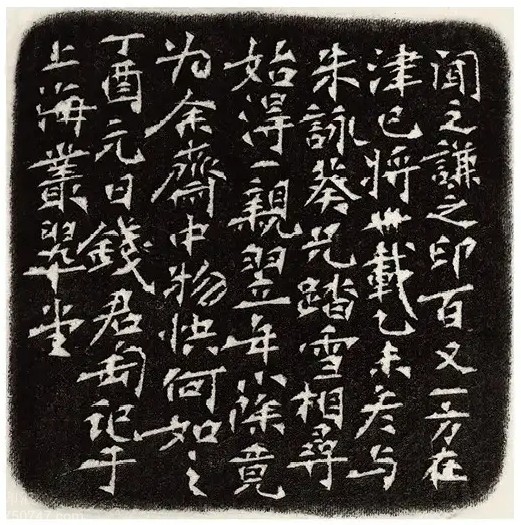 聞之謙之印百又一方在
津已將卅載乙未冬与
朱詠葵兄踏雪相尋
始得一親翌年小除竟
为余齋中物快何如之
丁酉元日錢君匋記于
上海叢翠堂